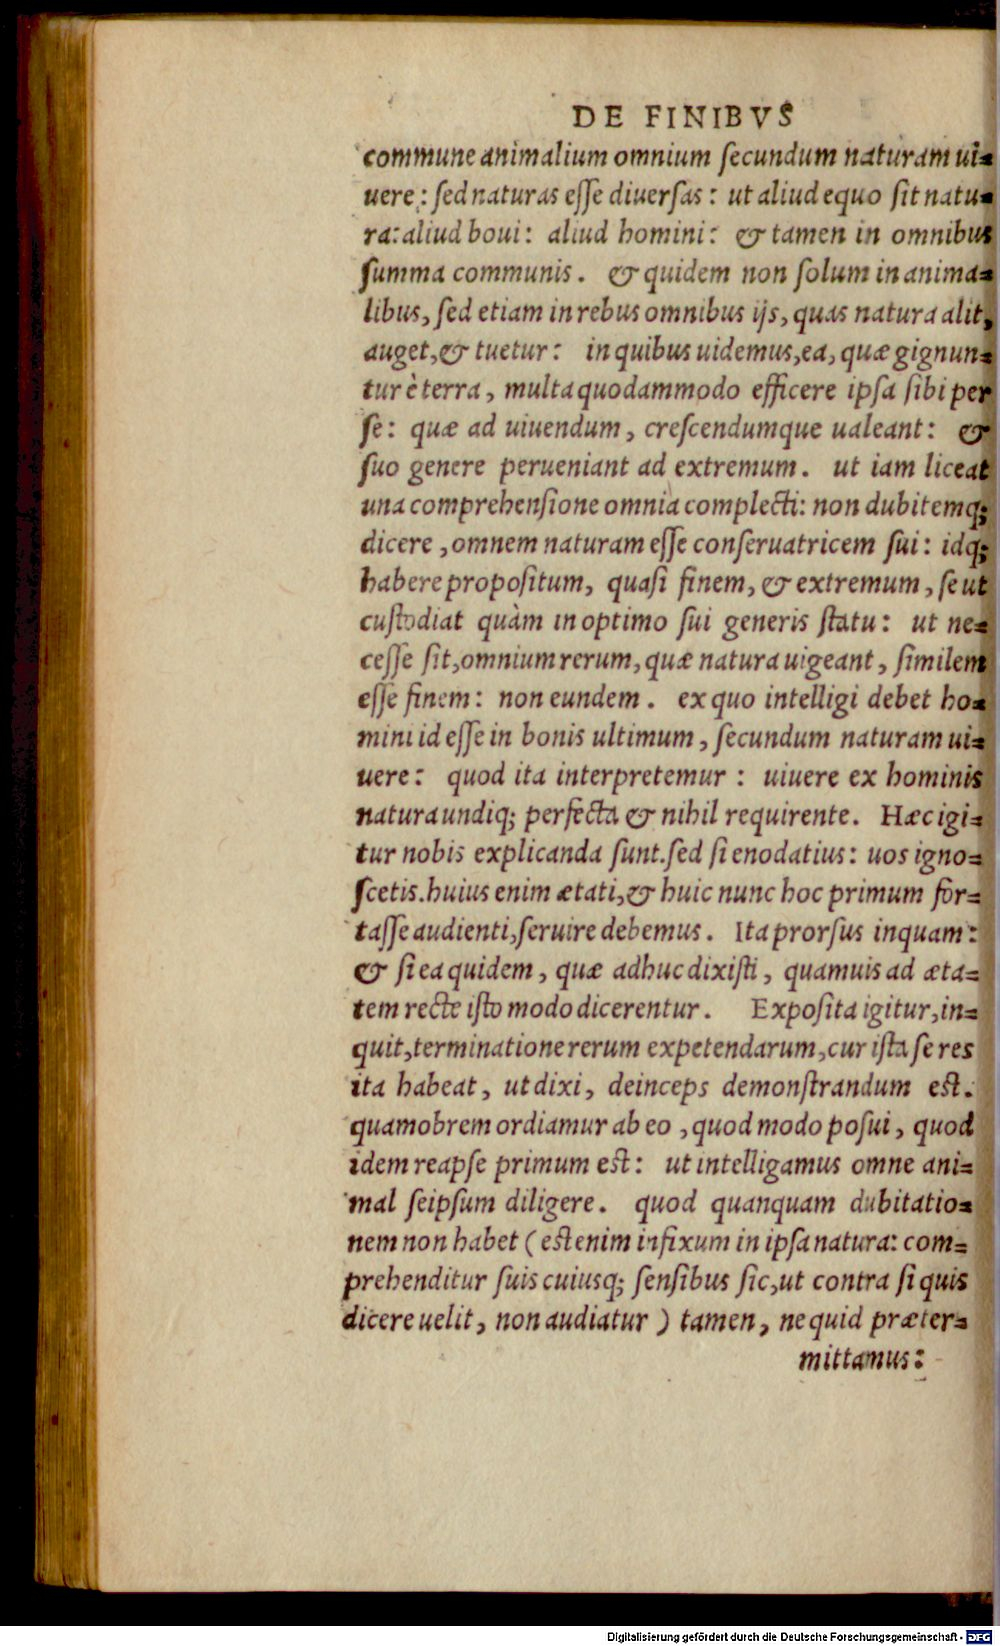 DE FINIBVS
commune animalium omnium ſecundum naturam ui-
uere: ſed naturas eſſe diuerſas: ut aliud equo ſit natu-
ra: aliud boui: aliud homini: & tamen in omnibus
ſumma communis. & quidem non ſolum in anima-
libus, ſed etiam in rebus omnibus ijs, quas natura alit,
auget, & tuetur: in quibus uidemus, ea, quæ gignun-
tur è terra, multa quodammodo efficere ipſa ſibi per
ſe: quæ ad uiuendum, creſcendumque ualeant: &
ſuo genere perueniant ad extremum. ut iam liceat
una comprehenſione omnia complecti: non dubitemq;
dicere, omnem naturam eſſe conſeruatricem ſui: idq;
habere propoſitum, quaſi finem, & extremum, ſe ut
cuſtodiat quàm in optimo ſui generis ſtatu: ut ne-
ceſſe ſit, omnium rerum, quæ natura uigeant, ſimilem
eſſe finem: non eundem. ex quo intelligi debet ho-
mini id eſſe in bonis ultimum, ſecundum naturam ui-
uere: quod ita interpretemur: uiuere ex hominis
natura undiq; perfecta & nihil requirente. Hæc igi-
tur nobis explicanda ſunt. ſed ſi enodatius: uos igno-
ſcetis. huius enim ætati, & huic nunc hoc primum for-
taſſe audienti, ſeruire debemus. Ita prorſus inquam:
& ſi ea quidem, quæ adhuc dixiſti, quamuis ad æta-
tem recte iſto modo dicerentur. Expoſita igitur, in-
quit, terminatione rerum expetendarum, cur iſta ſe res
ita habeat, ut dixi, deinceps demonſtrandum eſt.
quamobrem ordiamur ab eo, quod modo poſui, quod
idem reapſe primum eſt: ut intelligamus omne ani-
mal ſeipſum diligere. quod quanquam dubitatio-
nem non habet (eſt enim infixum in ipſa natura: com-
prehenditur ſuis cuiusq; ſenſibus ſic, ut contra ſi quis
dicere uelit, non audiatur) tamen, ne quid præter-
mittamus:
Digitalisierung gefördert durch die Deutsche Forschungsgemeinschaft - DFG